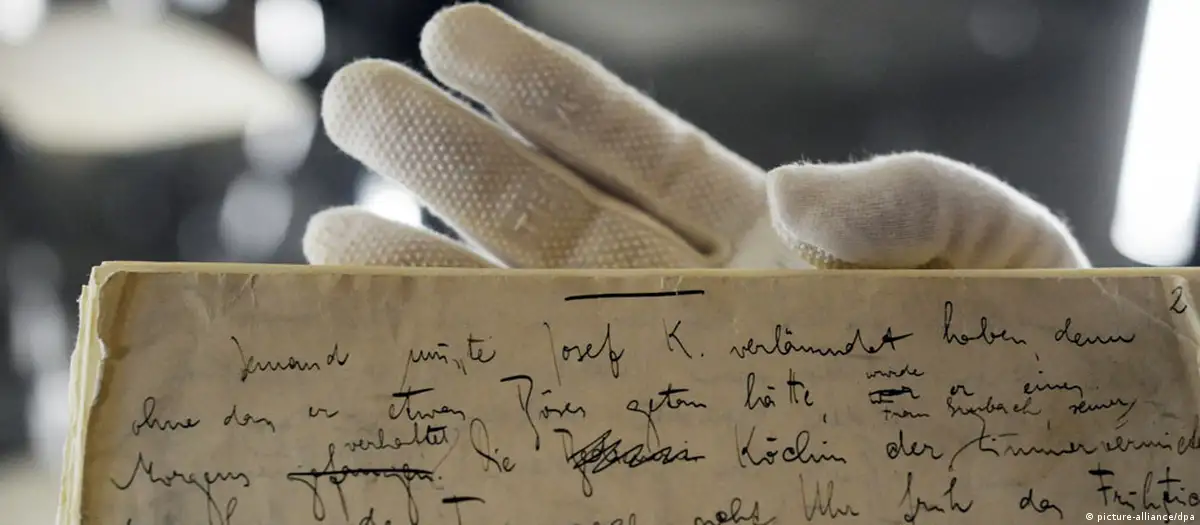 2
Jemand musste Josef K. verläumdet haben, denn
ohne dass er etwas Böses getan hätte, war er eines
wurde
Frau Grubach, seiner
Morgens gefangen. Die Köchin der Zimmervermie
verhaftet
Uhr früh das Frühstü
© picture-alliance/dpa